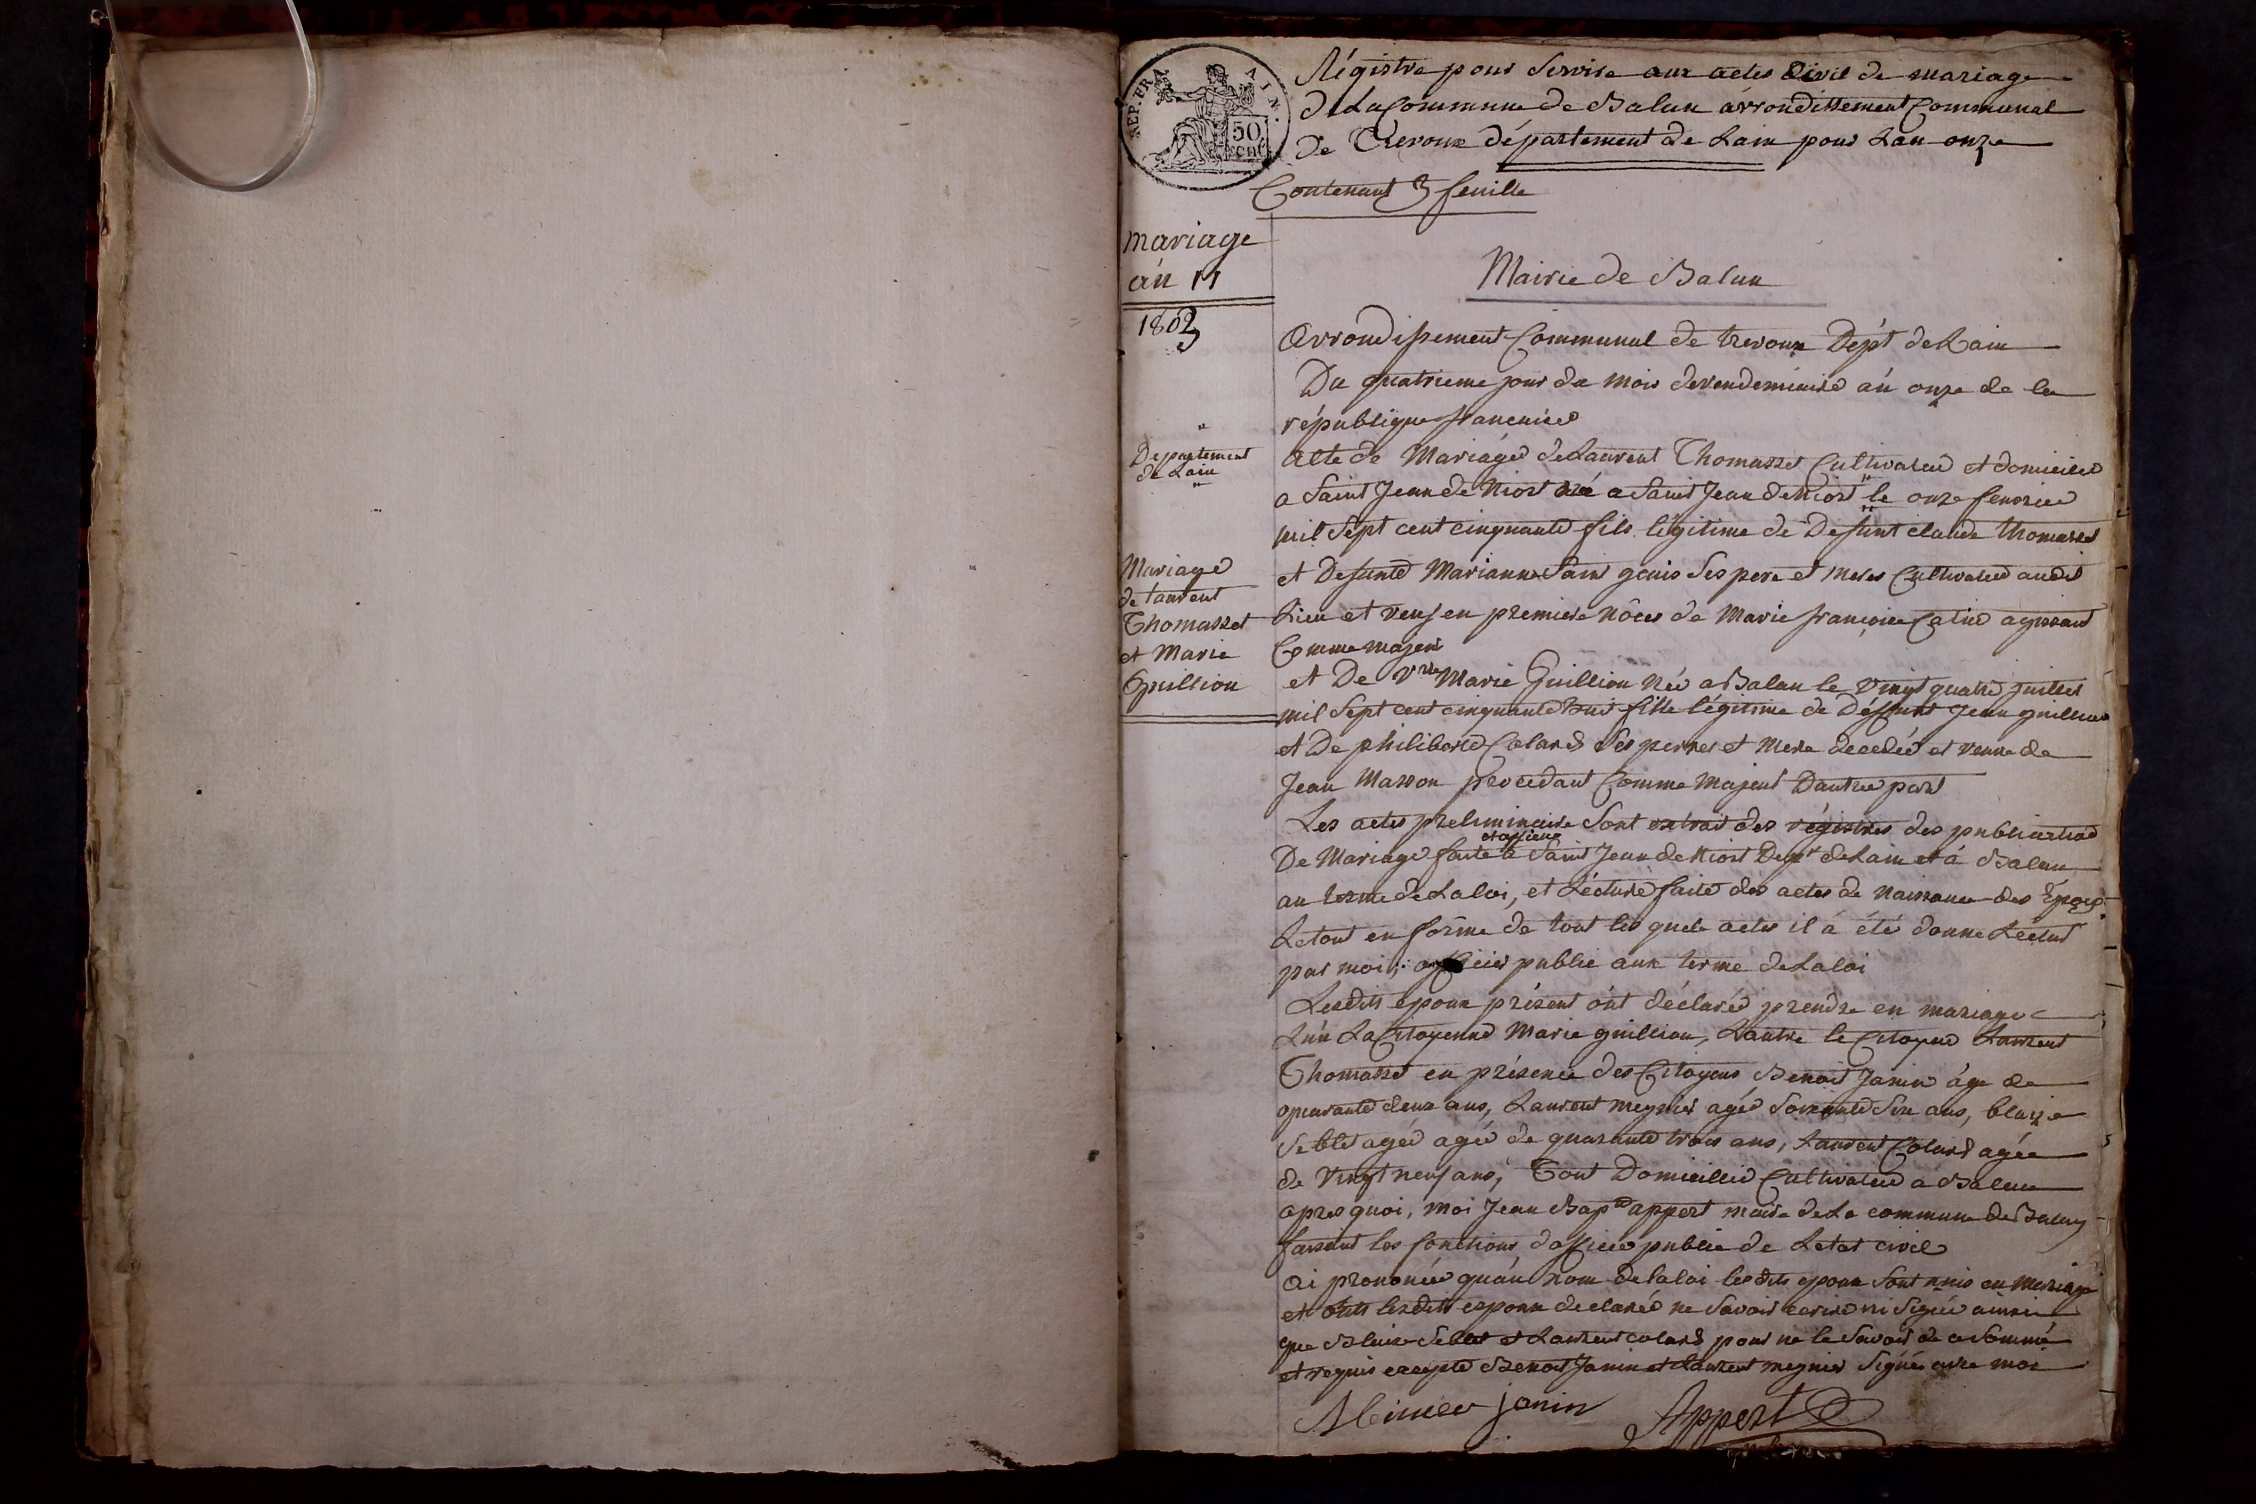 REP. FRA
AIN.
50
cent
Régistre pour Servire aux actes Civil de mariage
de La Commune de Balan arrondissement Communal
de Trevoux département de Lain pour Lan onze
Contenant 3 feuille
mariage
án 11
Mairie de Balan
1803
Arrondissement Communal de trevoux Dépt de Lain
Du quatrieme jour du mois de vendemiaire án onze de la
république francaise
Departement
de Lain
Acte de Mariage de Laurent Thomasset Cultivateur et domicilié
a Saint Jean de Niost né a Saint Jean de Niost le onze fevrier
mil Sept cent cinquante fils légitime de Defunt claude thomasset
Mariage
de laurent
Thomasset
et Marie
Guillion
et Defunte Marianne Saint genis Ses pere et Meres Cultivateur audit
Lieu et veuf en premiere nôces de Marie françoise agissant
Comme majeur
et De Vve Marie Guillion Née a Balan le Vingt quatre juillet
mil Sept cent cinquante huit fille légitime de Deffunt Jean guillion
et De philiberte Colard Ses perres et Mere decedée et veuve de
Jean Masson procedant Comme Majeur Dautre part
Les actes preliminaire Sont extrait des régistres des publication
De Mariage faite et affiché à Saint Jean de Niost Dept de Lain et á Balan
au terme de La loi, et Lécture faite des actes de naissance des Epoux
Le tout en forme de tout les quels actes il á été donne Lécture
par moi officier public aux terme de La loi
Lesdits epoux présent ont déclaré prendre en mariage
Lún La Citoyenne Marie guillion, Lautre le Citoyen Laurent
Thomasset en présence des Citoyens Benoit Janin âge de
quarante deux ans, Laurent meynier agé Soixante Six ans, blaize
Seblet agée agée de quarante trois ans, Laurent Colard agée
de Vingt neuf ans, Tout Domicilié Cultivateur a Balan
apres quoi, moi Jean Bapte appert maire de La commune de Balan
faisant les fonctions dofficier public de Letat civil
ai prononcée quáu nom de la loi les dits epoux Sont unis en Mariage
et ónts lesdits espoux declaré ne Savoir ecrire ni Signée ainsi
que Blaize Seblet et Laurent colard pour ne le Savoir de ce Sommé
et requis excepté Benoit Janin et Laurent meynier Signés avec moi
janin
Appert